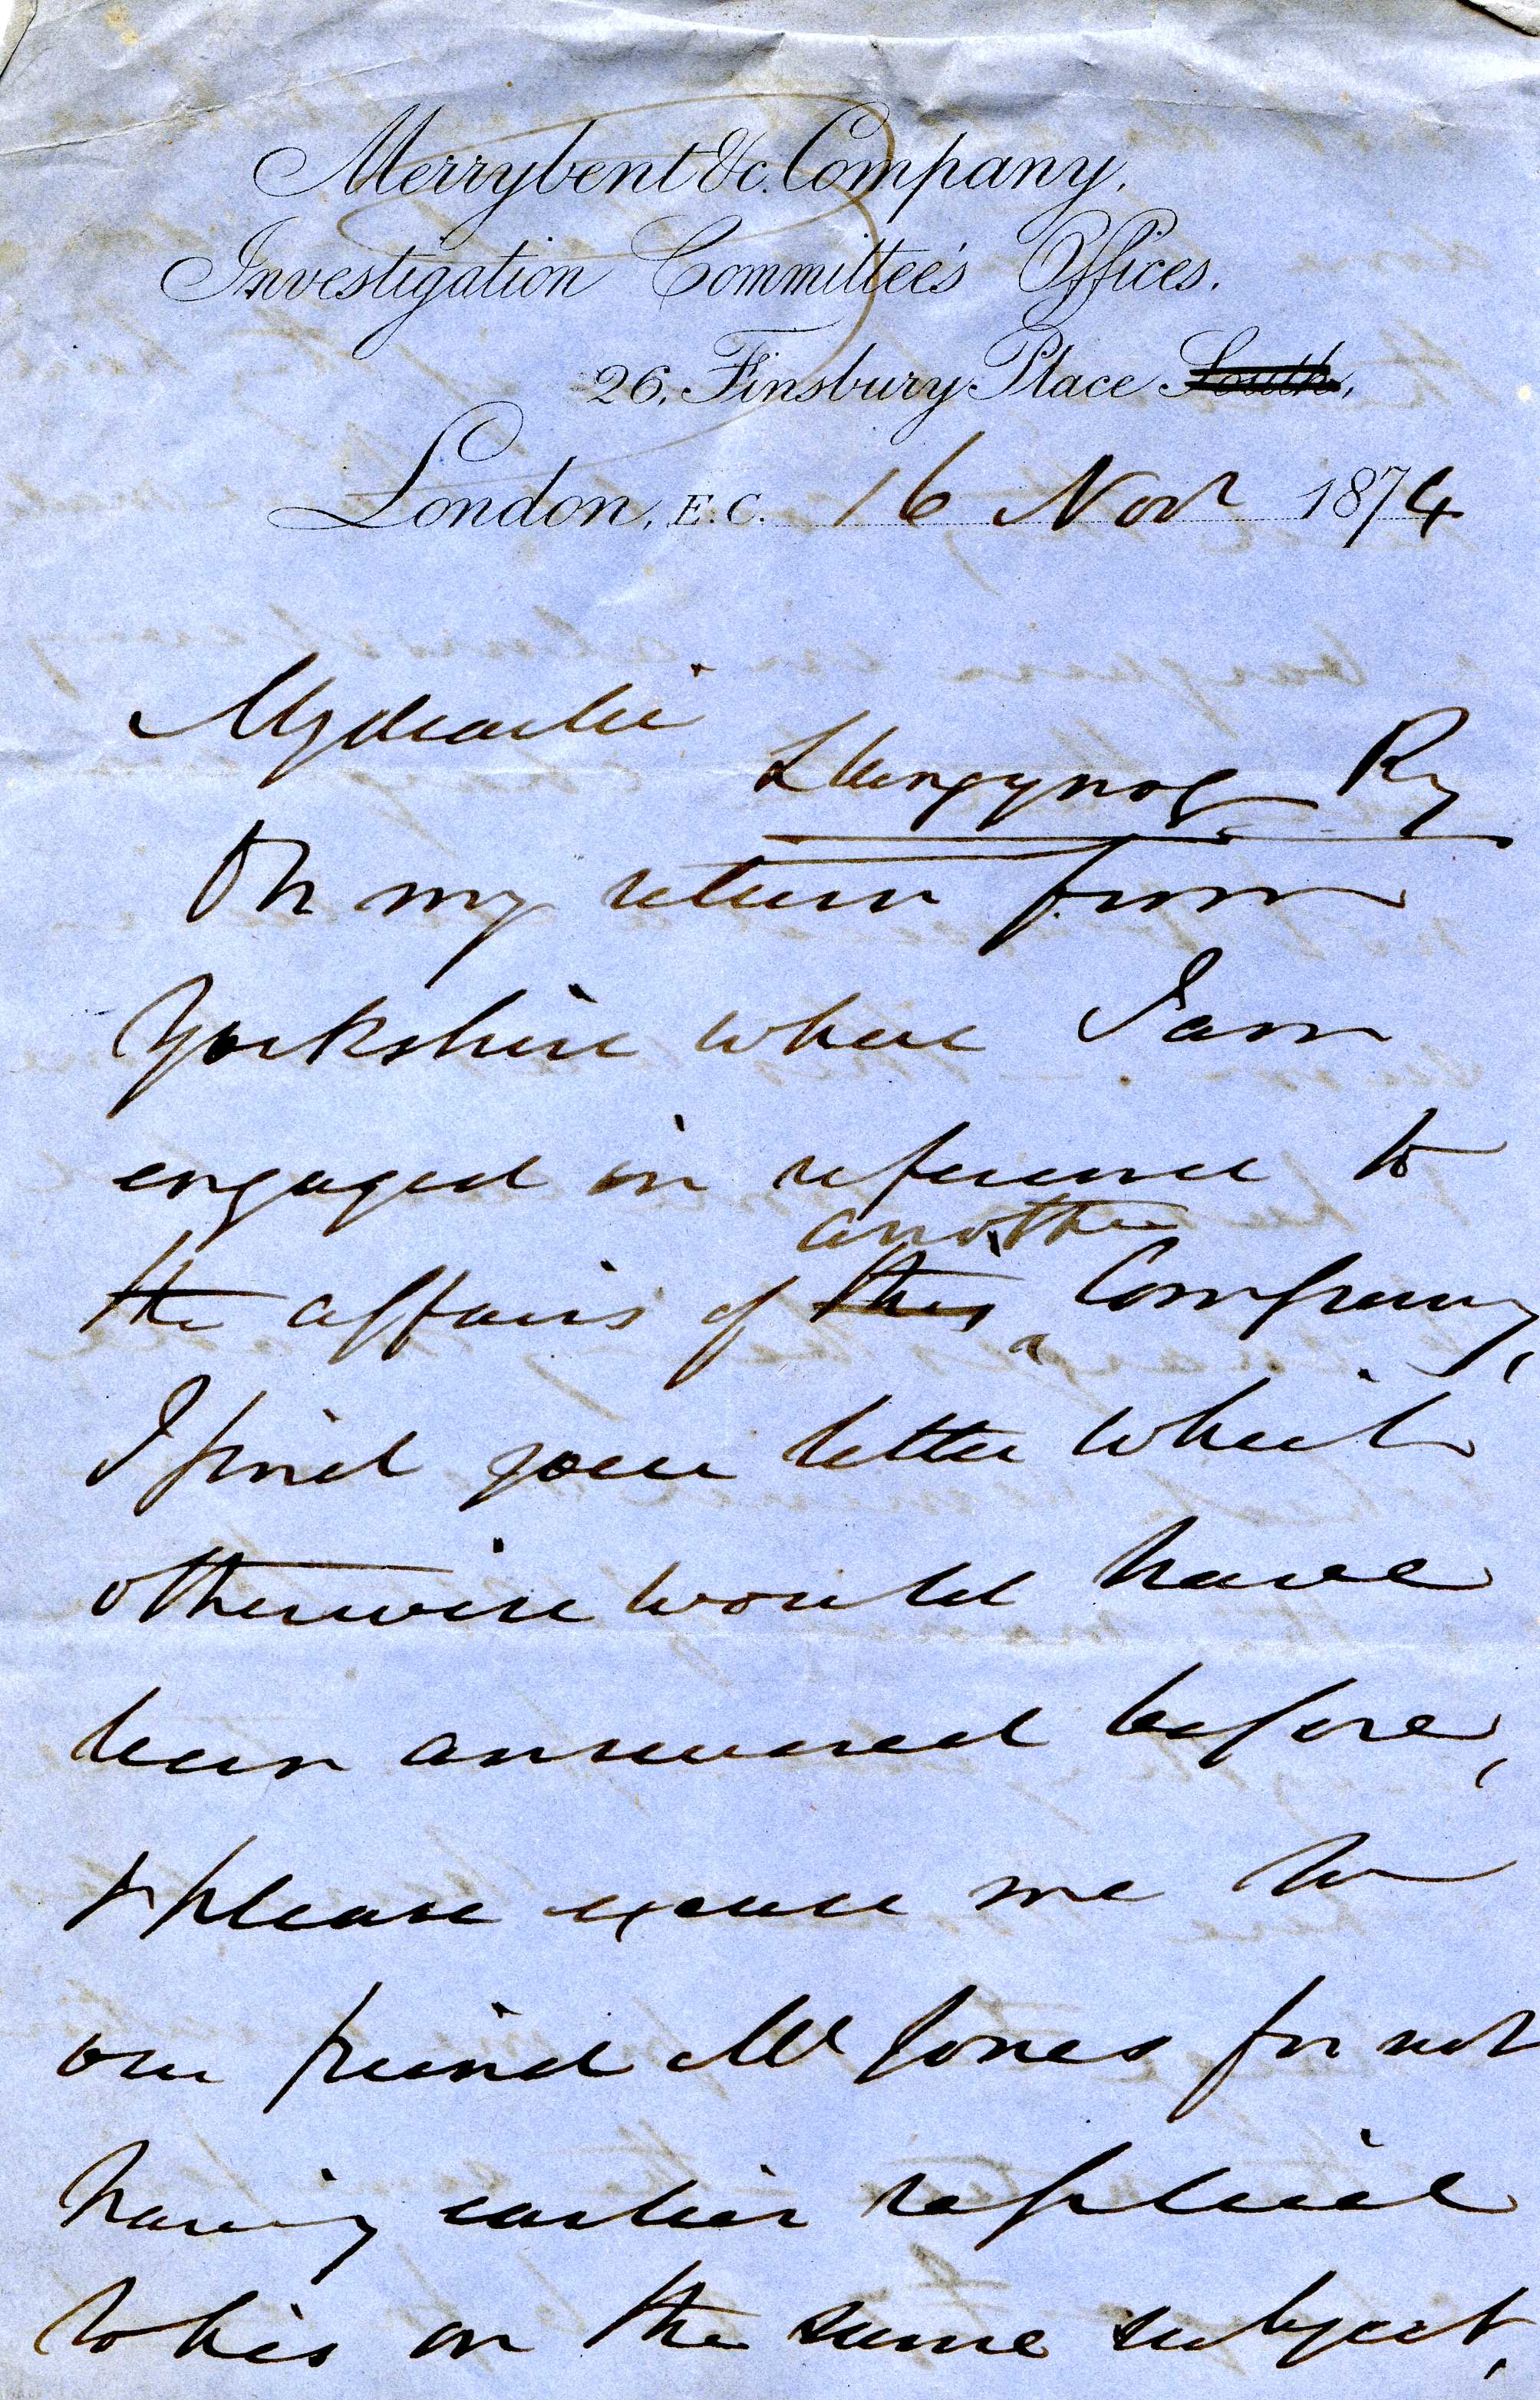 Merrybent &c. Company.
Investigation Committee's Offices.
26, Finsbury Place South,
London, E.C. 16 Novr 1874
My dear Sir
Llangynog Ry
On my return from
Yorkshire where I am
engaged in reference to
another
the affairs of this Company,
I find your letter which
otherwise would have
been answered before,
& please excuse me to
our friend Mr Jones for not
having earlier replied
to his on the same subject,